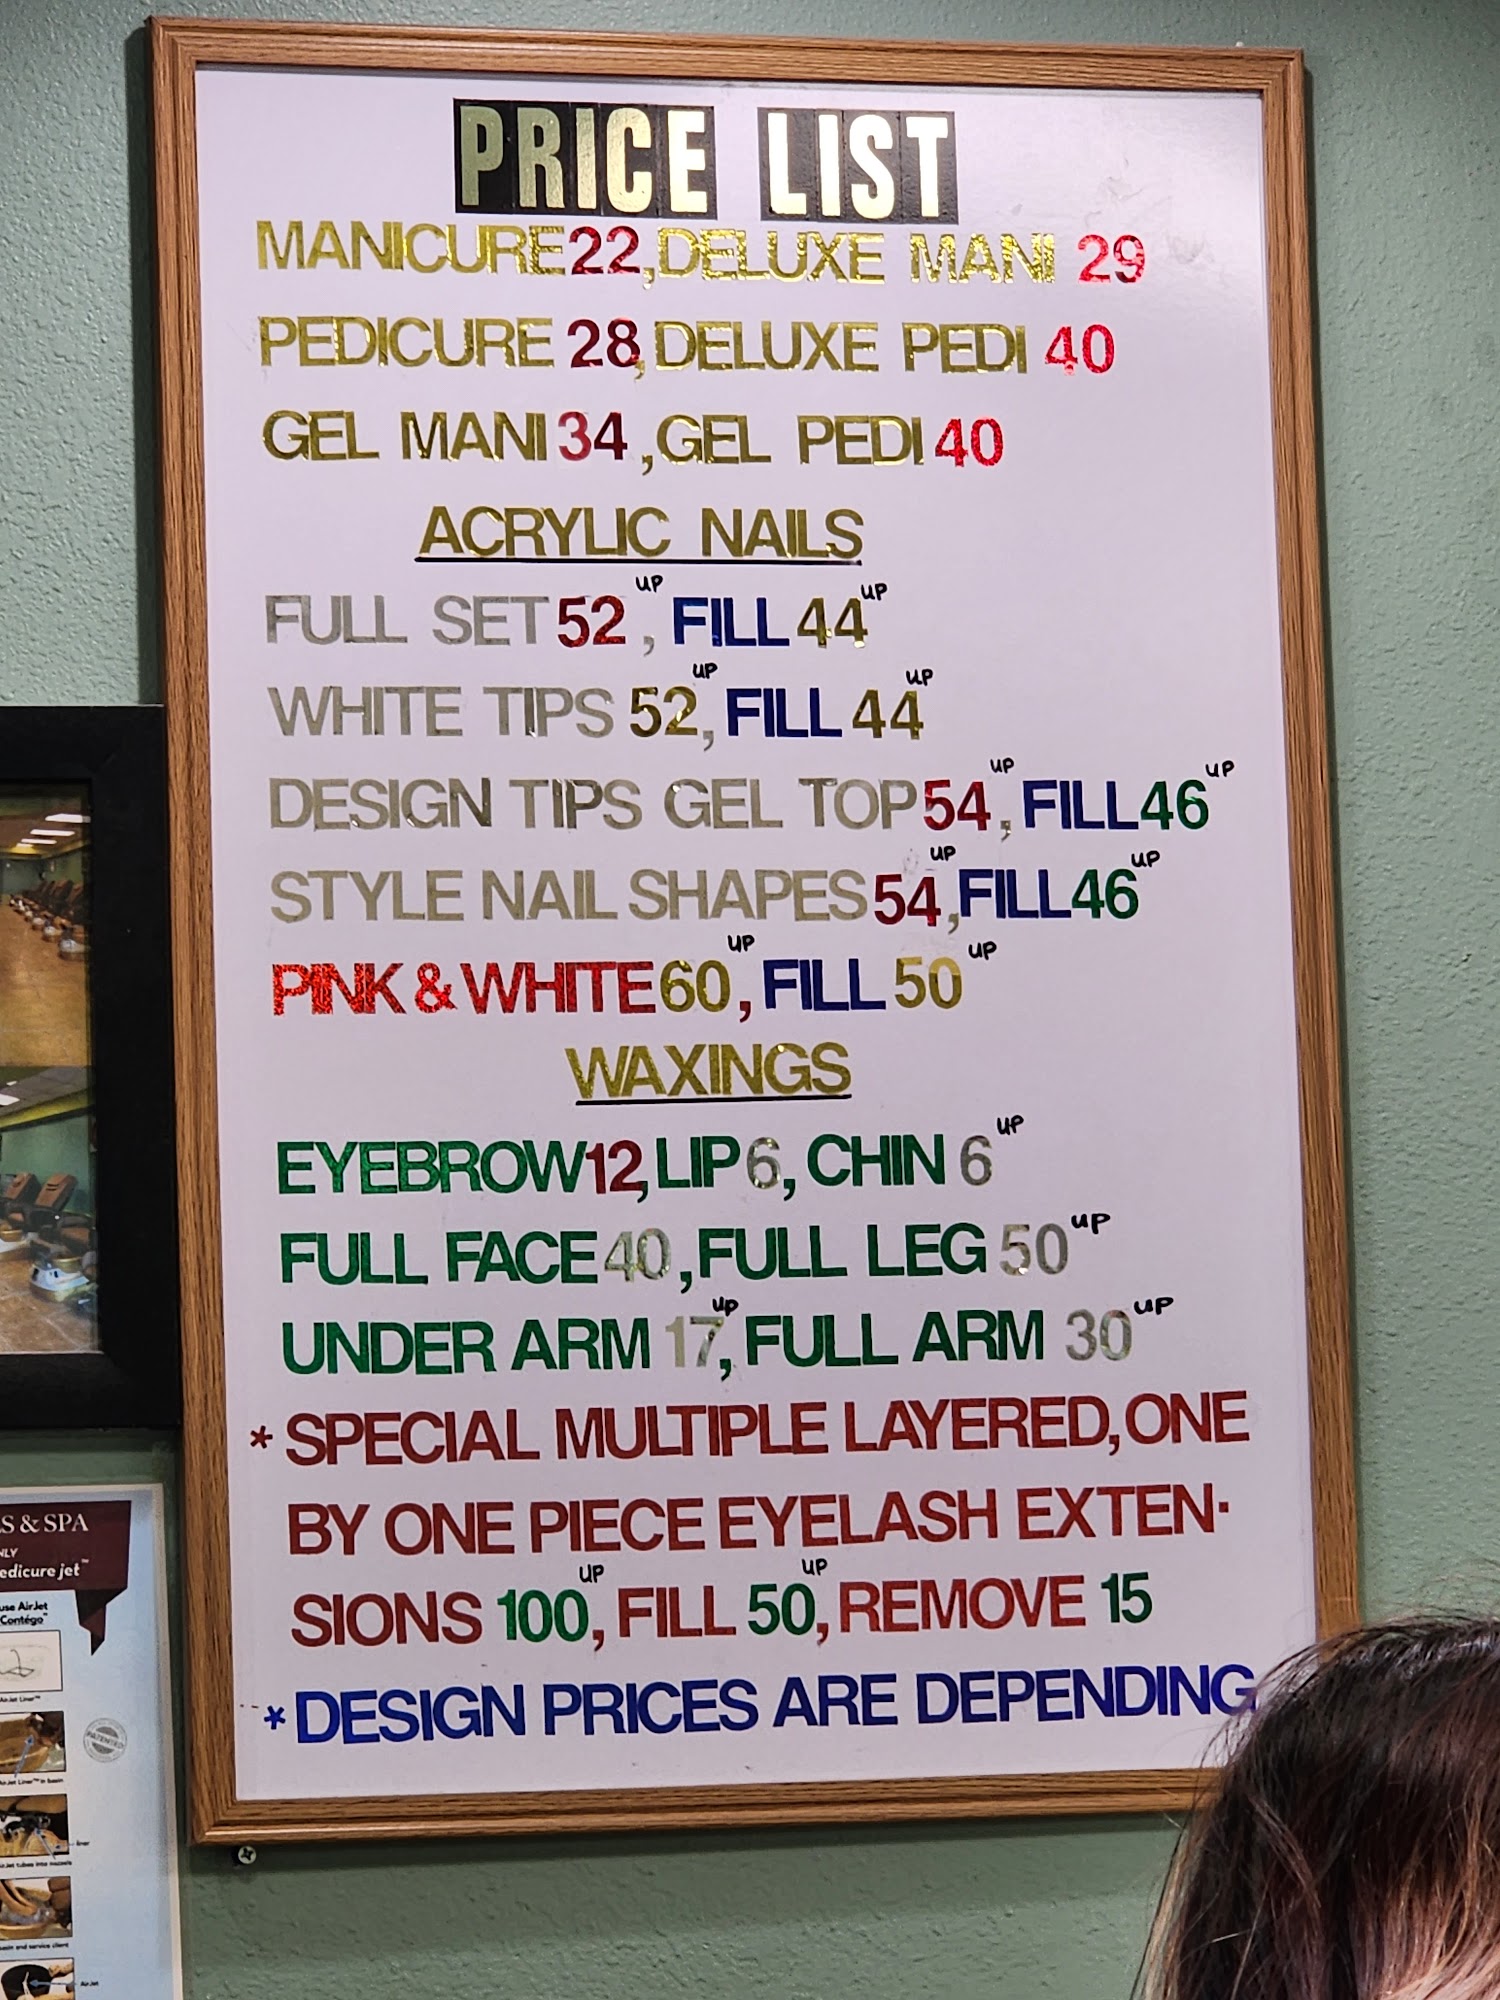 PRICE LIST
MANICURE 22, DELUXE MANI 29
PEDICURE 28, DELUXE PEDI 40
GEL MANI 34, GEL PEDI 40
ACRYLIC NAILS
FULL SET 52 up, FILL 44 up
WHITE TIPS 52 up, FILL 44 up
DESIGN TIPS GEL TOP 54 up, FILL 46 up
STYLE NAIL SHAPES 54 up, FILL 46 up
PINK & WHITE 60 up, FILL 50 up
WAXINGS
EYEBROW 12, LIP 6, CHIN 6 up
FULL FACE 40, FULL LEG 50 up
UNDER ARM 17 up, FULL ARM 30 up
* SPECIAL MULTIPLE LAYERED, ONE
BY ONE PIECE EYELASH EXTEN-
SIONS 100 up, FILL 50 up, REMOVE 15
* DESIGN PRICES ARE DEPENDING
S & SPA
edicure jet™
use AirJet
Contégo™
AirJet Liner™
AirJet Liner™ in basin
PATENTED
liner
AirJet tubes into nozzels
basin and service client
AirJet